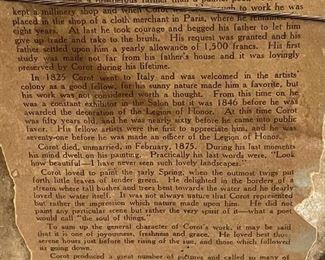 kept a millinery shop and when Corot
placed in the shop of a cloth merchant in Paris, where he remained
eight years. At that he took courage and begged his father to let him
give up trade and take to the brush. His request was granted and his
father settled upon him a yearly allowance of 1,500 francs. His first
study was made not far from his father's house and it was lovingly
preserved by Corot during his lifetime.
In 1825 Corot went to Italy and was welcomed in the artists'
colony as a good fellow, for his sunny nature made him a favorite, but
his work was not considered worth a thought. From this time on, he
was a constant exhibitor in the Salon but it was 1846 before he was
awarded the decoration of the Legion of Honor. At this time Corot
was fifty years old, and he was nearly sixty before he came into public
favor. His fellow artists were the first to appreciate him, and he was
seventy-one before he was made an officer of the Legion of Honor.
Corot died, unmarried, in February, 1875. During his last moments
his mind dwelt on his painting. Practically his last words were, "Look
how beautiful—I have never seen such lovely landscapes."
Corot loved to paint the early Spring, when the outmost twigs put
forth little leaves of tender green. He delighted in the borders of a
stream where tall bushes and trees bent towards the water and he dearly
loved the water itself. It was not always nature that Corot represented
but rather the impression which nature made upon him. He did not
paint any particular scene but rather the very spirit of it—what a poet
would call "the soul of things."
To sum up the general character of Corot's work, it may be said
that it is one of joyousness, freshness and grace. He loved best those
serene hours just before the rising of the sun, and those which followed
its going down.
Corot produced a great number of pictures and called so many of